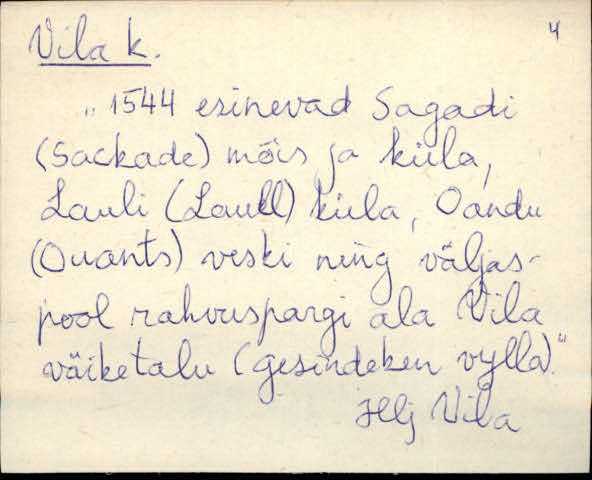 4
Vila k.
„1544 esinevad Sagadi
(Sackade) mõis ja küla,
Lauli (Laull) küla, Oandu
(Ouants) veski ning väljas-
pool rahvuspargi ala Vila
väiketalu (gesindeken vylla)."
Hlj Vila